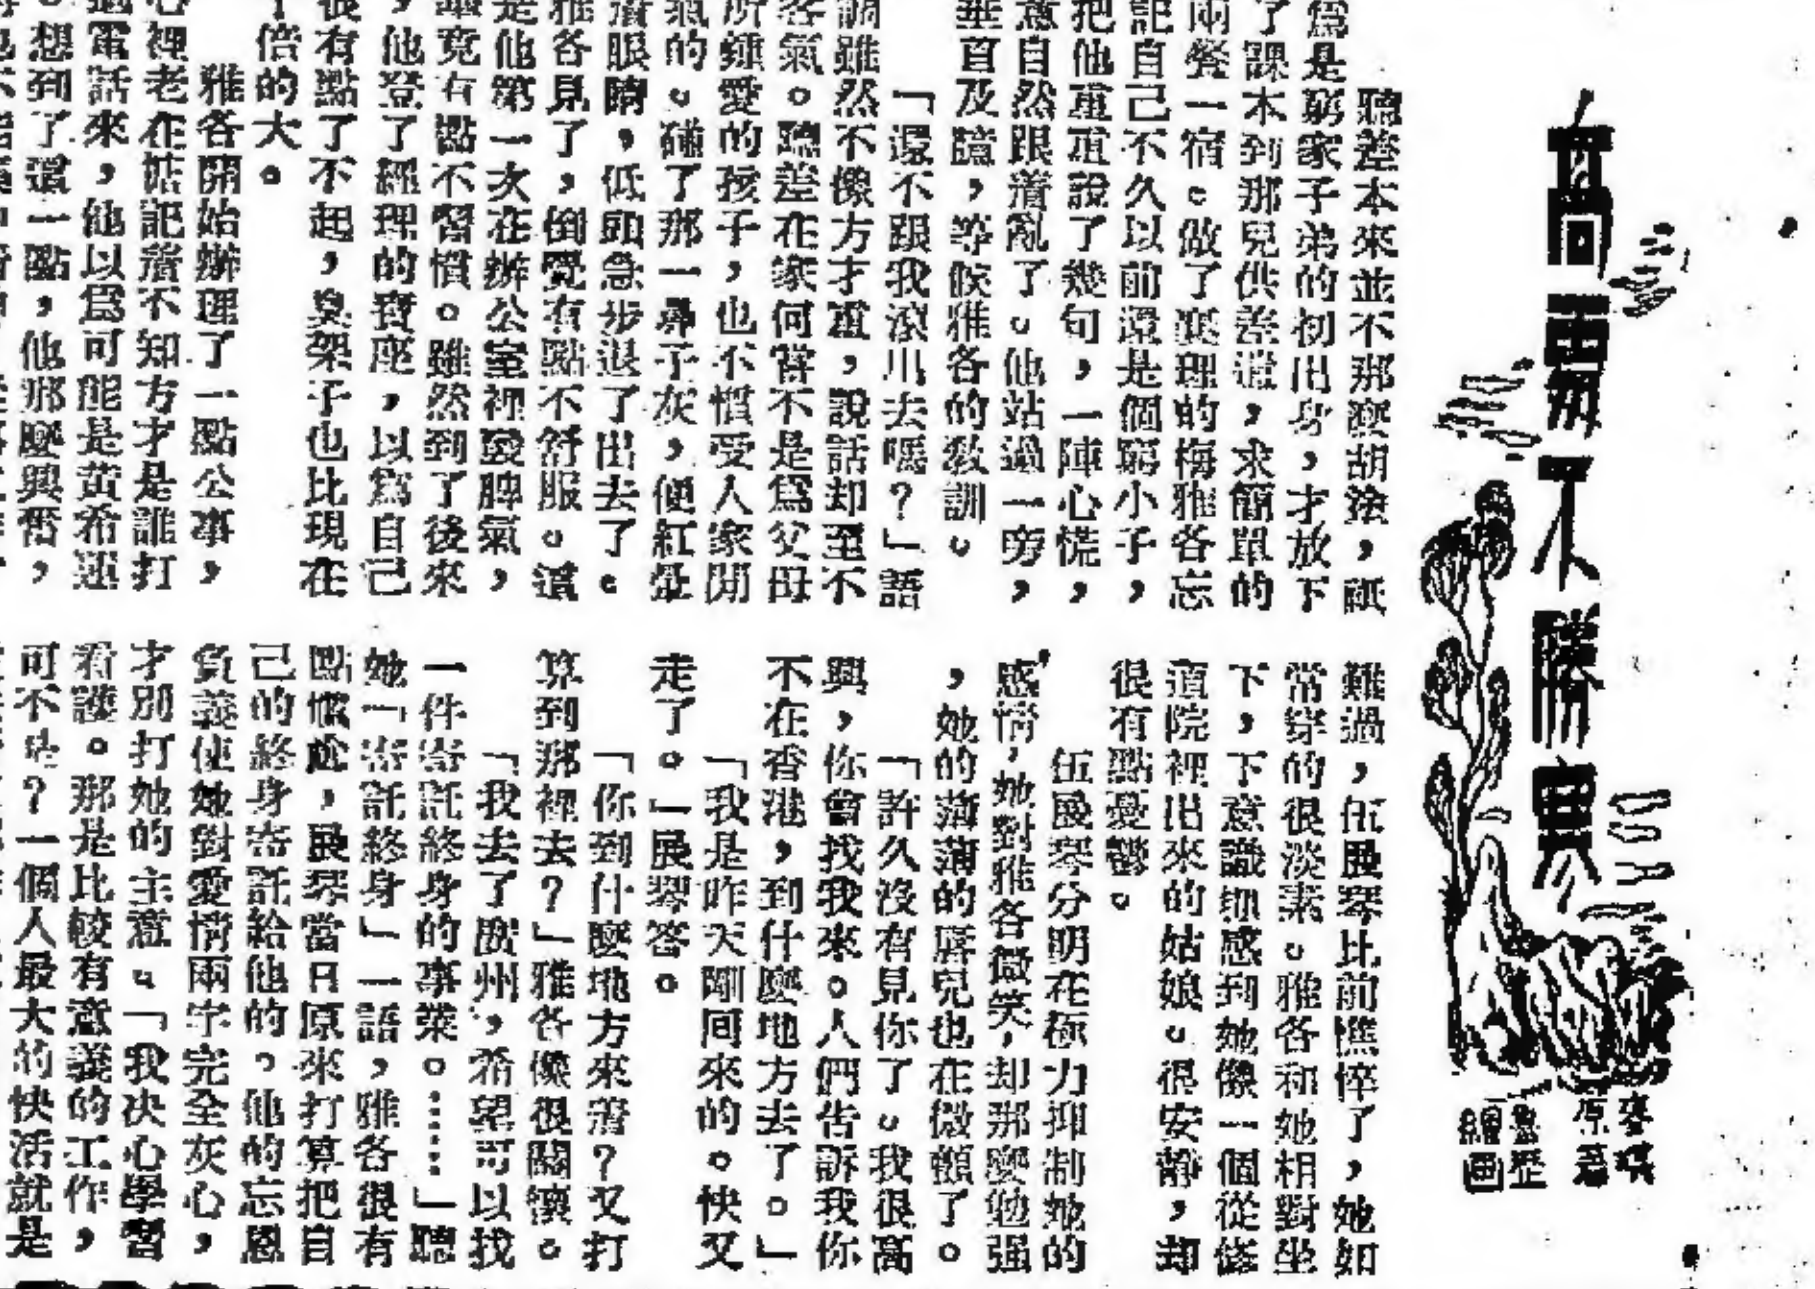 高處不勝寒
原著
繪圖
聽差本來並不那麼胡塗，祇
爲是窮家子弟的初出身，才放下
了課本到那兒供差遣，求簡單的
兩餐一宿。做了襄理的梅雅各忘
記自己不久以前還是個窮小子，
把他重重說了幾句，一陣心慌，
意自然跟着亂了。他站過一旁，
垂首及臆，等候雅各的教訓。
「還不跟我滾出去嗎？」語
調雖然不像方才重，說話却至不
客氣。聽差在家何嘗不是爲父母
所鍾愛的孩子，也不慣受人家閒
氣的。碰了那一鼻子灰，便紅暈
着眼睛，低頭急步退了出去了。
雅各見了，倒覺有點不舒服。這
是他第一次在辦公室裡發脾氣，
竟有點不習慣。雖然到了後來
，他登了經理的寶座，以爲自己
很有點了不起，臭架子也比現在
十倍的大。
雅各開始辦理了一點公事，
心裡老在惦記着不知方才是誰打
過電話來，他以爲可能是黃希
。想到了這一點，他那麼興奮，
難過，伍展琴比前憔悴了，她如
常穿的很淡素。雅各和她相對坐
下，下意識地感到她像一個從修
道院裡出來的姑娘。很安靜，却
很有點憂鬱。
伍展琴分明在極力抑制她的
感情，她對雅各微笑，却那麼勉强
，她的薄薄的唇兒也在微顫了。
「許久沒有見你了。我很高
興，你會找我來。人們告訴我你
不在香港，到什麼地方去了。」
「我是昨天剛回來的。快又
走了。」展琴答。
「你到什麼地方來着？又打
算到那裡去？」雅各像很關懷。
「我去了廣州，希望可以找
一件寄託終身的事業。……」聽
她「寄託終身」一語，雅各很有
點尷尬，展琴當日原來打算把自
己的終身寄託給他的。他的忘恩
負義使她對愛情兩字完全灰心，
才別打她的主意。「我决心學習
看護。那是比較有意義的工作，
可不是？一個人最大的快活就是